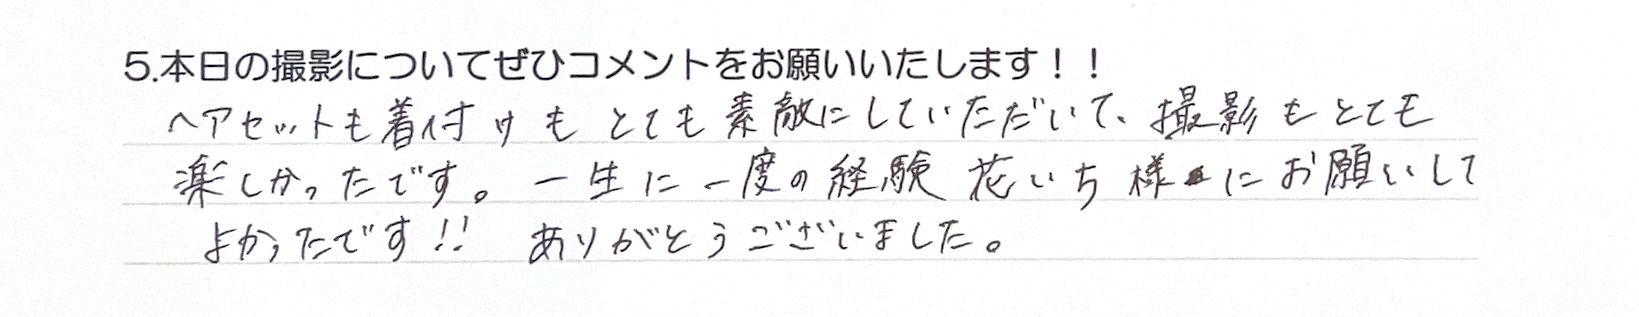 5.本日の撮影についてぜひコメントをお願いいたします！！
ヘアセットも着付けもとても素敵にしていただいて、撮影もとても
楽しかったです。一生に一度の経験花いち様にお願いして
よかったです!! ありがとうございました。